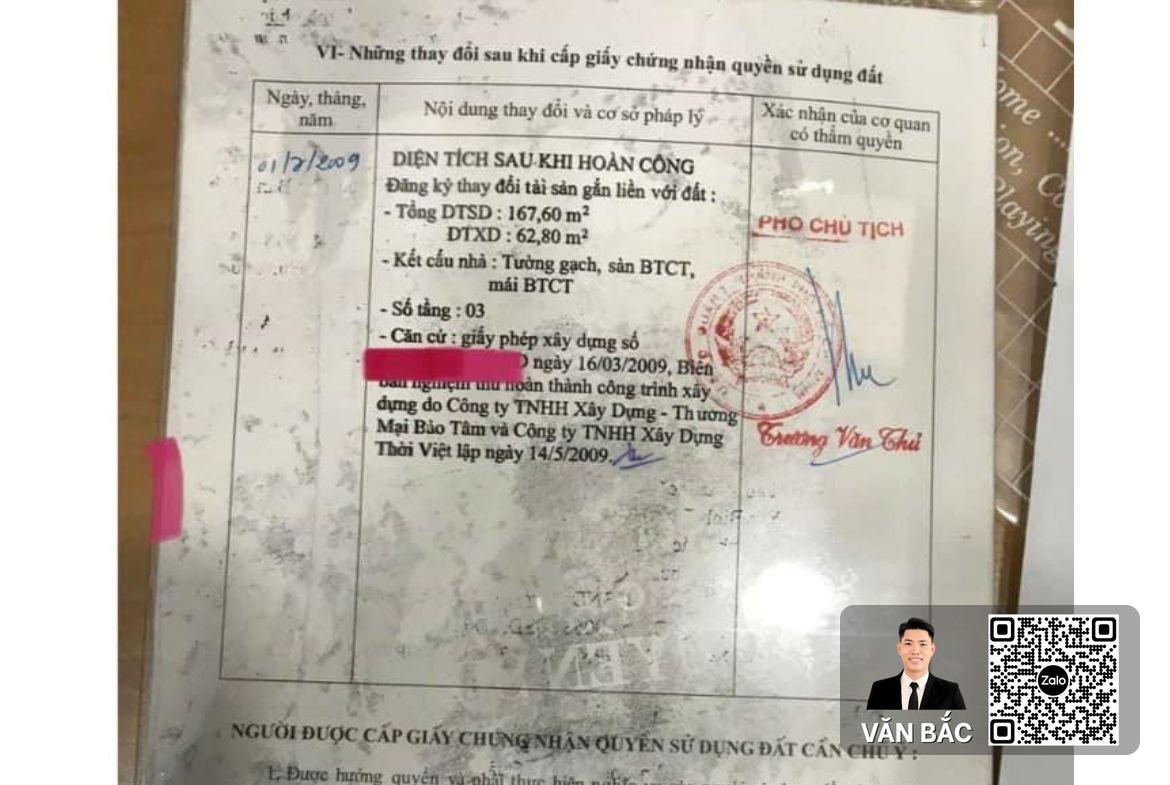 VI- Những thay đổi sau khi cấp giấy chứng nhận quyền sử dụng đất
Ngày, tháng, năm
Nội dung thay đổi và cơ sở pháp lý
Xác nhận của cơ quan có thẩm quyền
01/7/2009
DIỆN TÍCH SAU KHI HOÀN CÔNG
Đăng ký thay đổi tài sản gắn liền với đất :
- Tổng DTSD : 167,60 m²
DTXD : 62,80 m²
- Kết cấu nhà : Tường gạch, sàn BTCT,
mái BTCT
- Số tầng : 03
- Căn cứ : giấy phép xây dựng số
ngày 16/03/2009, Biên
bản nghiệm thu hoàn thành công trình xây
dựng do Công ty TNHH Xây Dựng - Thương
Mại Bảo Tâm và Công ty TNHH Xây Dựng
Thời Việt lập ngày 14/5/2009.
PHÓ CHỦ TỊCH
Trương Văn Thủ
NGƯỜI ĐƯỢC CẤP GIẤY CHỨNG NHẬN QUYỀN SỬ DỤNG ĐẤT CẦN CHÚ Ý :
1. Được hưởng quyền và phải thực hiện
ome ...
ion, Co
Playing
Zalo
VĂN BẮC